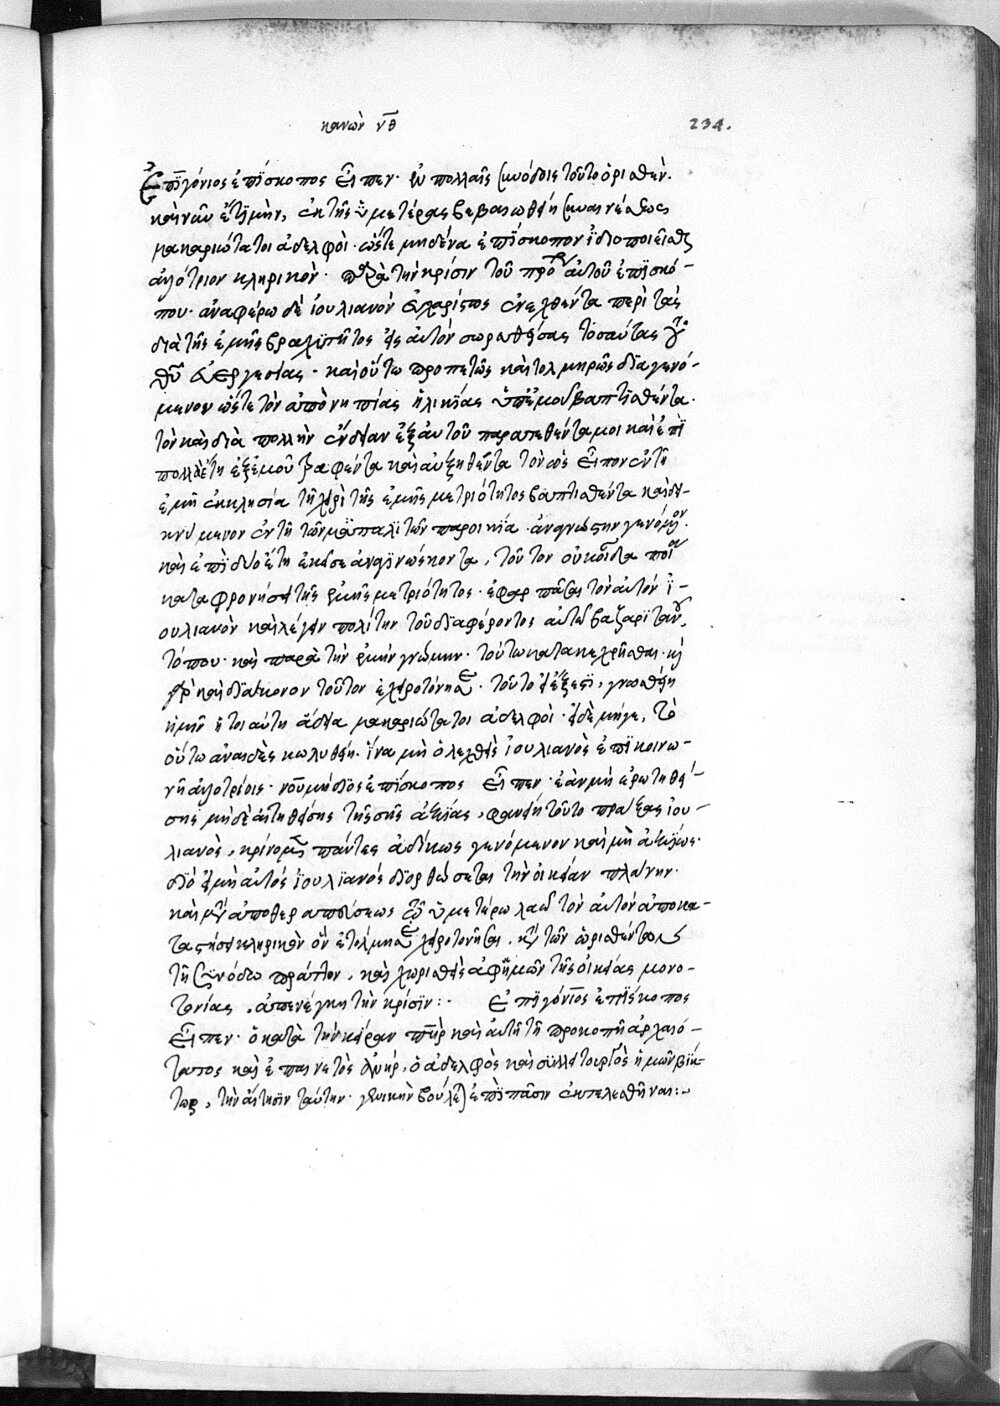 κανὼν νθ
234.
Ἐπιγόνιος ἐπίσκοπος εἶπεν· ἐν πολλαῖς συνόδοις τοῦτο ὁρισθέν·
καὶ νῦν ἔτι μὴν, ἐκ τῆς ὑμετέρας βεβαιωθήσεται συναινέσεως
μακαριώτατοι ἀδελφοί· ὥστε μηδένα ἐπίσκοπον ἰδιοποιεῖσθαι
ἀλότριον κληρικὸν· παρὰ τὴν κρίσιν τοῦ προτέρου αὐτοῦ ἐπισκό-
που· ἀναφέρω δὲ ἰουλιανὸν ἀχάριστον ὀνειχθέντα περὶ τὰς
διὰ τῆς ἐμῆς βραχύτητος εἰς αὐτὸν σωρευθείσας τοσαύτας τοῦ
θεοῦ εὐεργεσίας· καὶ οὕτω προπετῶς καὶ τολμηρῶς διαγενό-
μενον ὥστε τὸν ἀπὸ νηπίας ἡλικίας ὑπ' ἐμοῦ βαπτισθέντα·
τὸν καὶ διὰ πολλὴν ἔνδειαν ἐξ αὐτοῦ παρατεθέντα μοι καὶ ἐπὶ
πολλὰ ἔτη ἐξ ἐμοῦ τραφέντα καὶ αὐξηθέντα τὸν ὡς εἶπον ἐν τῇ
ἐμῇ ἐκκλησία τῇ χειρὶ τῆς ἐμῆς μετριότητος βαπτισθέντα καὶ δει-
κνύμενον ἐν τῇ τῶν μαπαλιτῶν παροικία· ἀναγνώστην γενόμενον·
καὶ ἐπὶ δύο ἔτη ἐκεῖσε ἀναγινώσκοντα, τοῦτον οὐκ οἶδα ποία
καταφρονήσει τῆς ἐμῆς μετριότητος· ἐφαρπάσαι τὸν αὐτὸν ἰ-
ουλιανὸν καὶ λέγειν πολίτην τοῦ διαφέροντος αὐτῶ βαζαριτανοῦ
τόπου· καὶ παρὰ τὴν ἐμὴν γνώμην· τούτω κατακεχρῆσθαι· καὶ
γὰρ καὶ διάκονον τοῦτον ἐχειροτόνησε· τοῦτο εἰ ἔξεστι, γνωσθείη
ἡμῖν ἡ τοιαύτη ἄδεια μακαριώτατοι ἀδελφοί· εἰ δὲ μήγε, τὸ
οὕτω ἀναιδὲς κωλυθείη· ἵνα μὴ ὁ λεχθεὶς ἰουλιανὸς ἐπικοινω-
νῆ ἀλοτρίοις· νουμήδιος ἐπίσκοπος εἶπεν· ἐὰν μὴ ἐρωτηθεί-
σης μὴ δὲ αἰτηθείσης τῆς σῆς ἀξίας, φανείη τοῦτο πράξας ἰου-
λιανὸς, κρίνομεν πάντες ἀδίκως γενόμενον καὶ μὴ ἀξίως·
διὸ εἰ μὴ αὐτὸς ἰουλιανὸς διορθώσεται τὴν οἰκείαν πλάνην·
καὶ μετὰ ἀποθεραπεύσεως τῶ ὑμετέρω λαῶ τὸν αὐτὸν ἀποκα-
ταστήσει κληρικὸν ὃν ἐτόλμησε χειροτονῆσαι, κατὰ τῶν ὁρισθέντων
τῇ συνόδω πράττων, καὶ χωρισθεὶς ἀφ' ἡμῶν τῆς οἰκείας μονο-
τονίας, ἀπενέγκη τὴν κρίσιν:· Ἐπιγόνιος ἐπίσκοπος
εἶπεν· ὁ κατὰ τὴν κάραν πατὴρ καὶ αὐτῇ τῇ προκοπῇ ἀρχαιό-
τατος καὶ ἐπαινετὸς ἀνήρ, ὁ ἀδελφὸς καὶ συλλειτουργὸς ἡμῶν βίκ-
τωρ, τὴν αἴτησιν ταύτην· γενικὴν βούλεται ἐπὶ πᾶσιν ἐκτελεσθῆναι:~